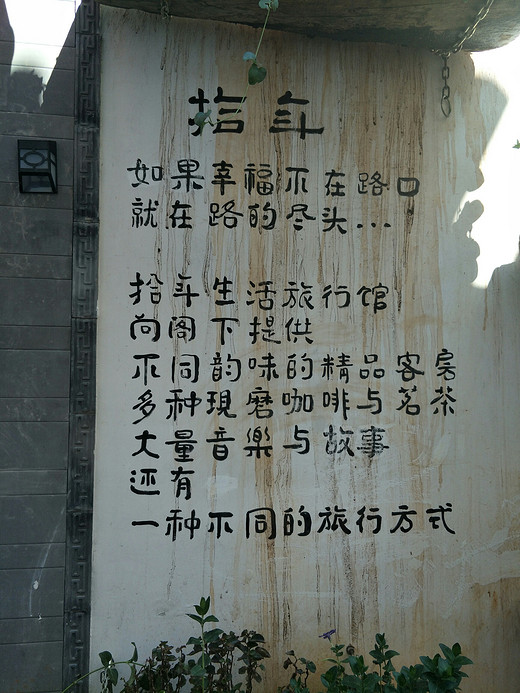 拾年
如果幸福不在路口
就在路的尽头...
拾年生活旅行馆
向阁下提供
不同韵味的精品客房
多种现磨咖啡与茗茶
大量音樂与故事
还有
一种不同的旅行方式